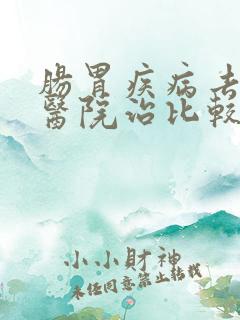 腸胃疾病去
醫院治比較
小小財神
未經同意禁止轉載